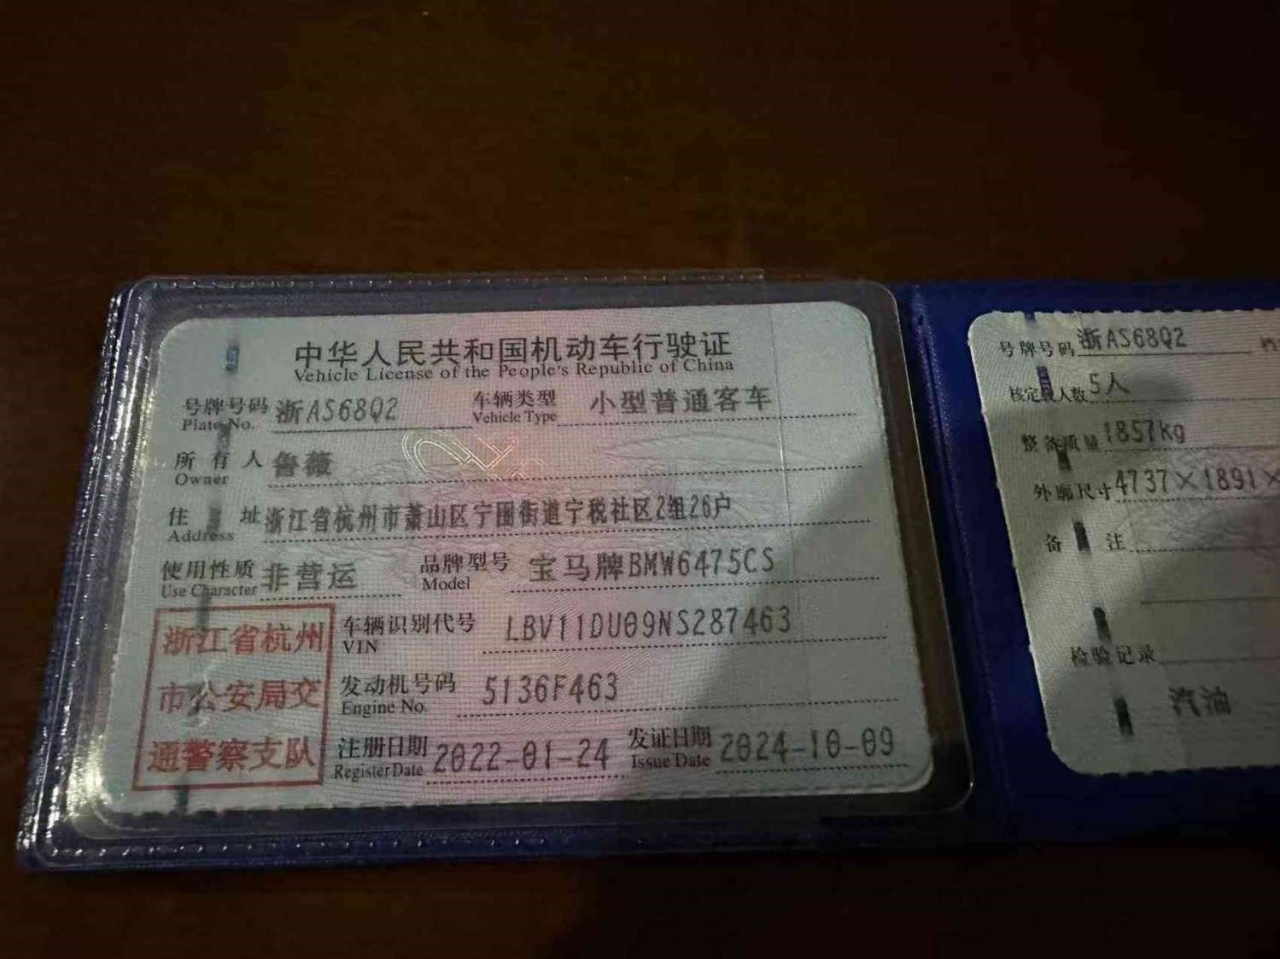 中华人民共和国机动车行驶证
Vehicle License of the People's Republic of China
号牌号码 浙AS68Q2 车辆类型 小型普通客车
Plate No. Vehicle Type
所有人 鲁薇
Owner
住址 浙江省杭州市萧山区宁围街道宁税社区2组26户
Address
使用性质 非营运 品牌型号 宝马牌BMW6475CS
Use Character Model
浙江省杭州
市公安局交
通警察支队
车辆识别代号 LBV11DU09NS287463
VIN
发动机号码 5136F463
Engine No.
注册日期 2022-01-24 发证日期 2024-10-09
Register Date Issue Date
号牌号码 浙AS68Q2
核定载人数 5人
整备质量 1857kg
外廓尺寸 4737×1891×
备注
检验记录
汽油